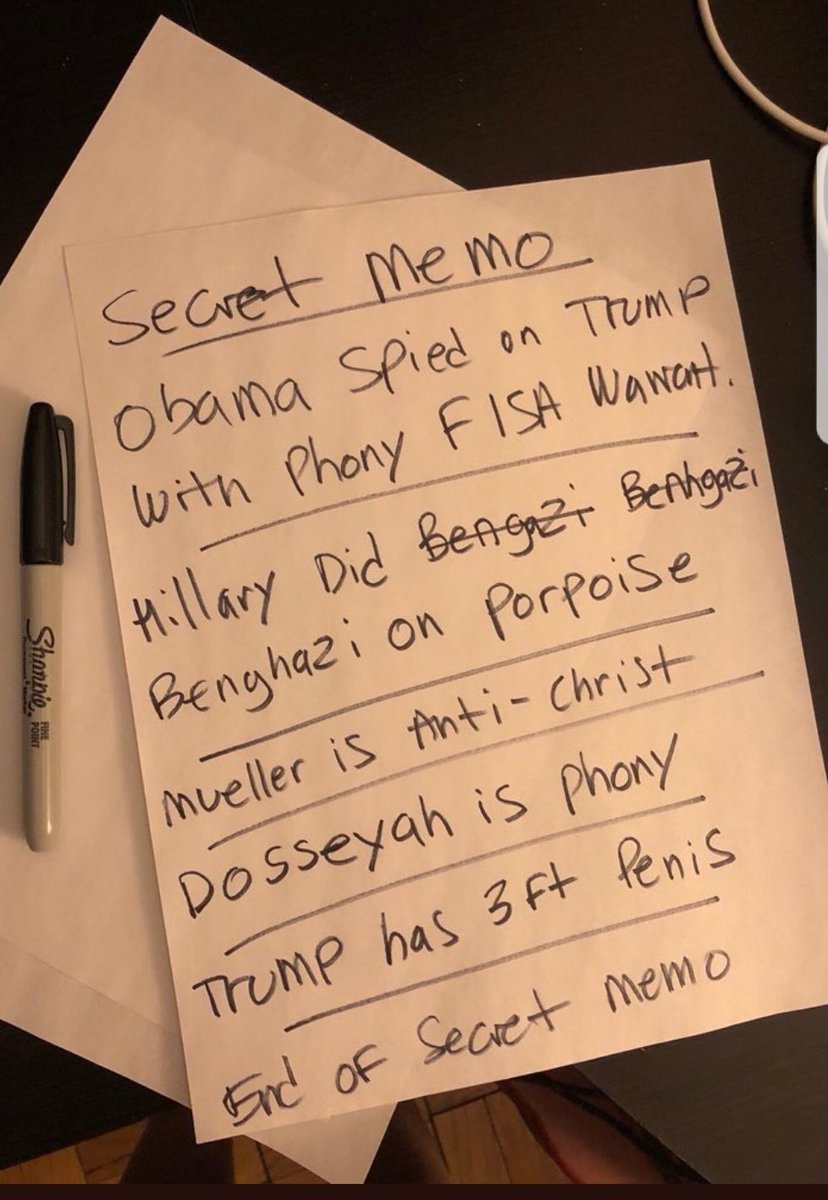 Secret Memo
Obama Spied on Trump
with Phony FISA Warratt.
Hillary Did Bengazi Benhgazi
Benghazi on Porpoise
Mueller is Anti-Christ
Dosseyah is Phony
Trump has 3ft Penis
End of Secret Memo
Sharpie
FINE
POINT